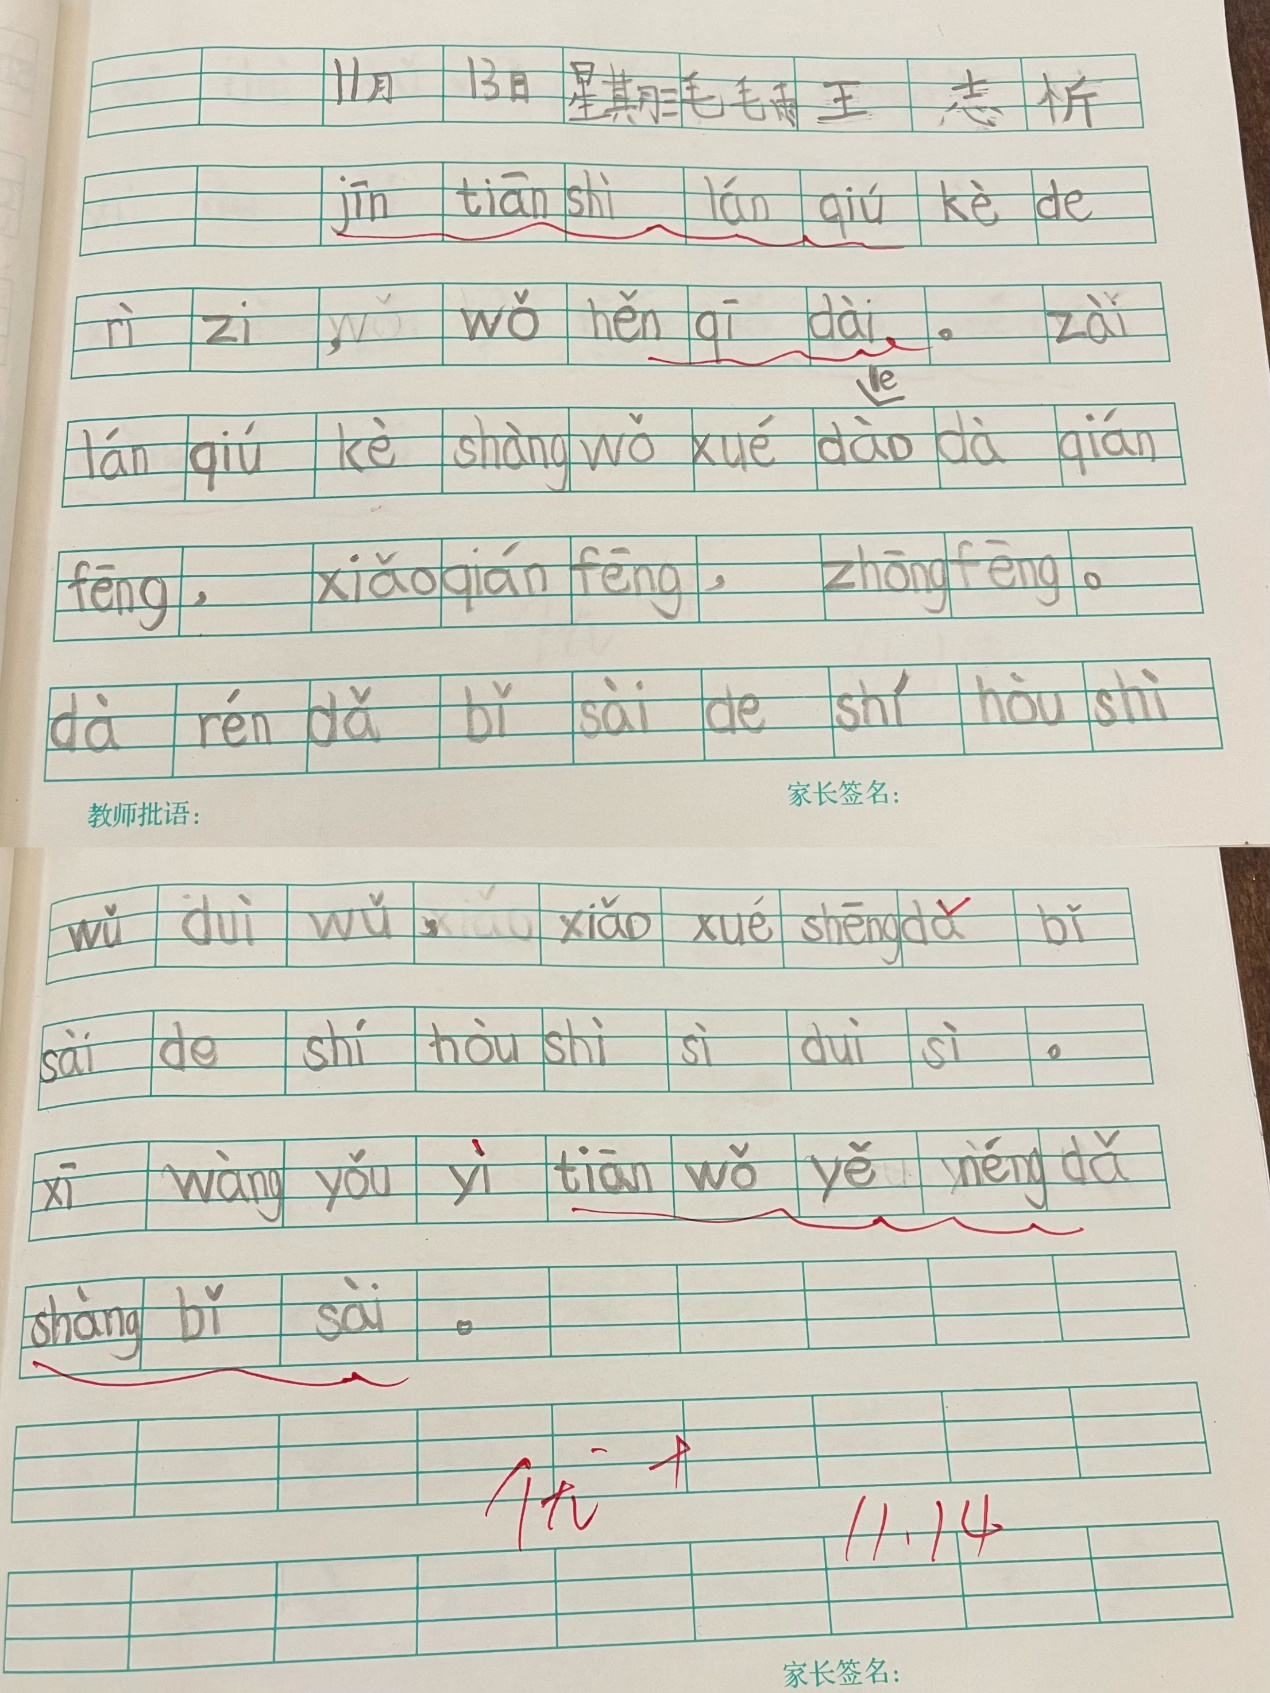 11月 13日 星期三 毛毛雨 王 志 析
jīn tiān shì lán qiú kè de
rì zi , wǒ hěn qī dài 。 zài
le
lán qiú kè shàng wǒ xué dào dà qián
fēng , xiǎo qián fēng , zhōng fēng 。
dà rén dǎ bǐ sài de shí hòu shì
教师批语：
家长签名：
wǔ duì wǔ , xiǎo xué shēng dǎ bǐ
sài de shí hòu shì sì duì sì 。
xī wàng yǒu yì tiān wǒ yě néng dǎ
shàng bǐ sài 。
优 - +
11.14
家长签名：